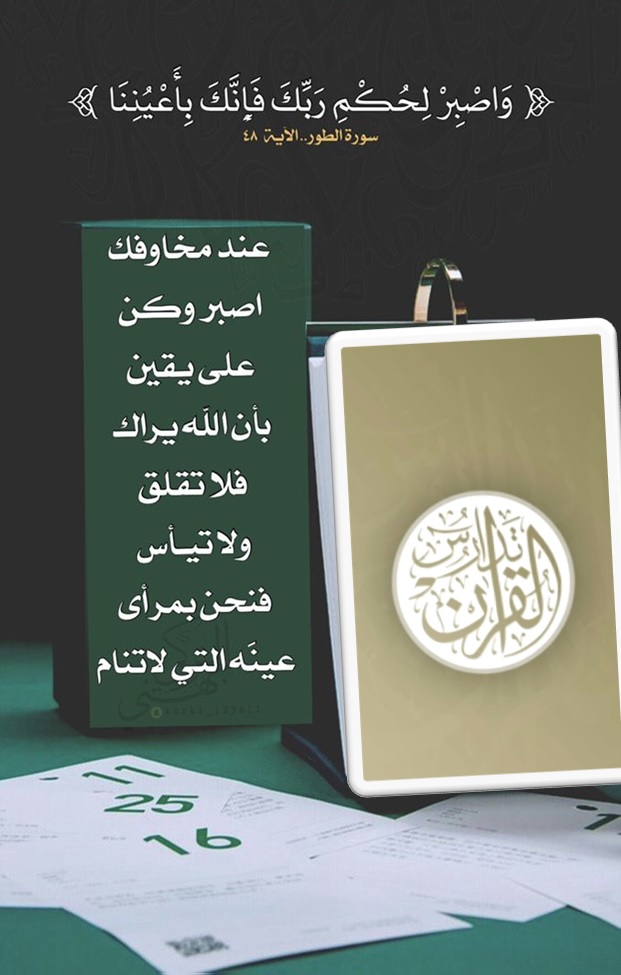 ﴿ وَاصْبِرْ لِحُكْمِ رَبِّكَ فَإِنَّكَ بِأَعْيُنِنَا ﴾
سورة الطور..الآية ٤٨
عند مخاوفك
اصبر وكن
على يقين
بأن الله يراك
فلا تقلق
ولا تيأس
فنحن بمرأى
عينَه التي لاتنام
تَدَارُسُ
القرآن
11
25
16